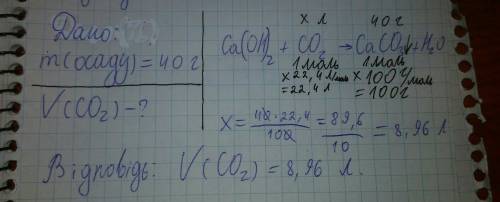 Дано:
m(осаду)=40г
V(CO₂)-?
x л 40г
Ca(OH)₂ + CO₂ → CaCO₃↓+H₂O
1моль 1моль
x22,4л/моль x100г/моль
=22,4л =100г
X = 40·22,4/100 = 89,6/10 = 8,96 л
Відповідь: V(CO₂) = 8,96 л.